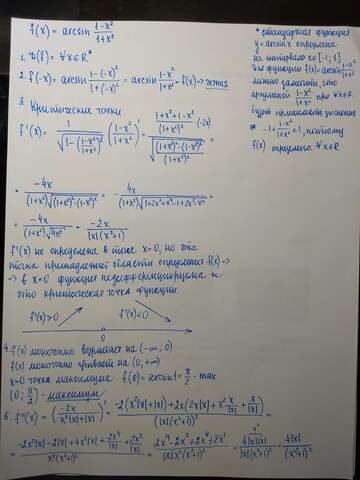 f(x) = arcsin (1-x²)/(1+x²)
1. D(f) = ∀x∈R *
2. f(-x) = arcsin (1-(-x)²)/(1+(-x)²) = arcsin (1-x²)/(1+x²) = f(x) ⇒ чётная
3. Критические точки
f'(x) = 1/√(1-((1-x²)/(1+x²))²) · ((1-x²)/(1+x²))' = ((1+x²+1-x²)/(1+x²)² (-2x))/√(((1+x²)²-(1-x²)²)/(1+x²)²) =
= -4x/((1+x²)√((1+x²)²-(1-x²)²)) = - 4x/((1+x²)√(1+2x²+x⁴-1+2x²-x⁴)) =
= -4x/((1+x²)√(4x²)) = -2x/(|x|(x²+1))
f'(x) не определена в точке x=0, но эта
точка принадлежит области определения f(x) ⇒
⇒ в x=0 функция недифференцируема и
это критическая точка функции.
f'(x)>0 f'(x)<0
0
4. f(x) монотонно возрастает на (-∞, 0)
f(x) монотонно убывает на (0, +∞)
x=0 точка максимума f(0) = arcsin1 = π/2 - max
(0; π/2) - максимум
5. f''(x) = (-2x/(x²|x|+|x|))' = (-2(x²|x|+|x|)+2x(2x|x|+x² x/|x|+x/|x|))/(|x|(x²+1))² =
= (-2x²|x|-2|x|+4x²|x|+2x⁴/|x|+2x²/|x|)/(x²(x²+1)²) = (2x⁴-2x²+2x⁴+2x²)/(|x|x²(x²+1)²) = 4|x||x|³/(|x|x²(x²+1)²) = 4|x|/(x²+1)²
* стандартная функция
y=arcsin x определена
на интервале x∈[-1; 1]
Для функции f(x)=arcsin (1-x²)/(1+x²)
можно заметить, что
аргумент (1-x²)/(1+x²) при ∀x∈R
будет принимать значения
-1< (1-x²)/(1+x²) ≤1, поэтому
f(x) определена ∀x∈R